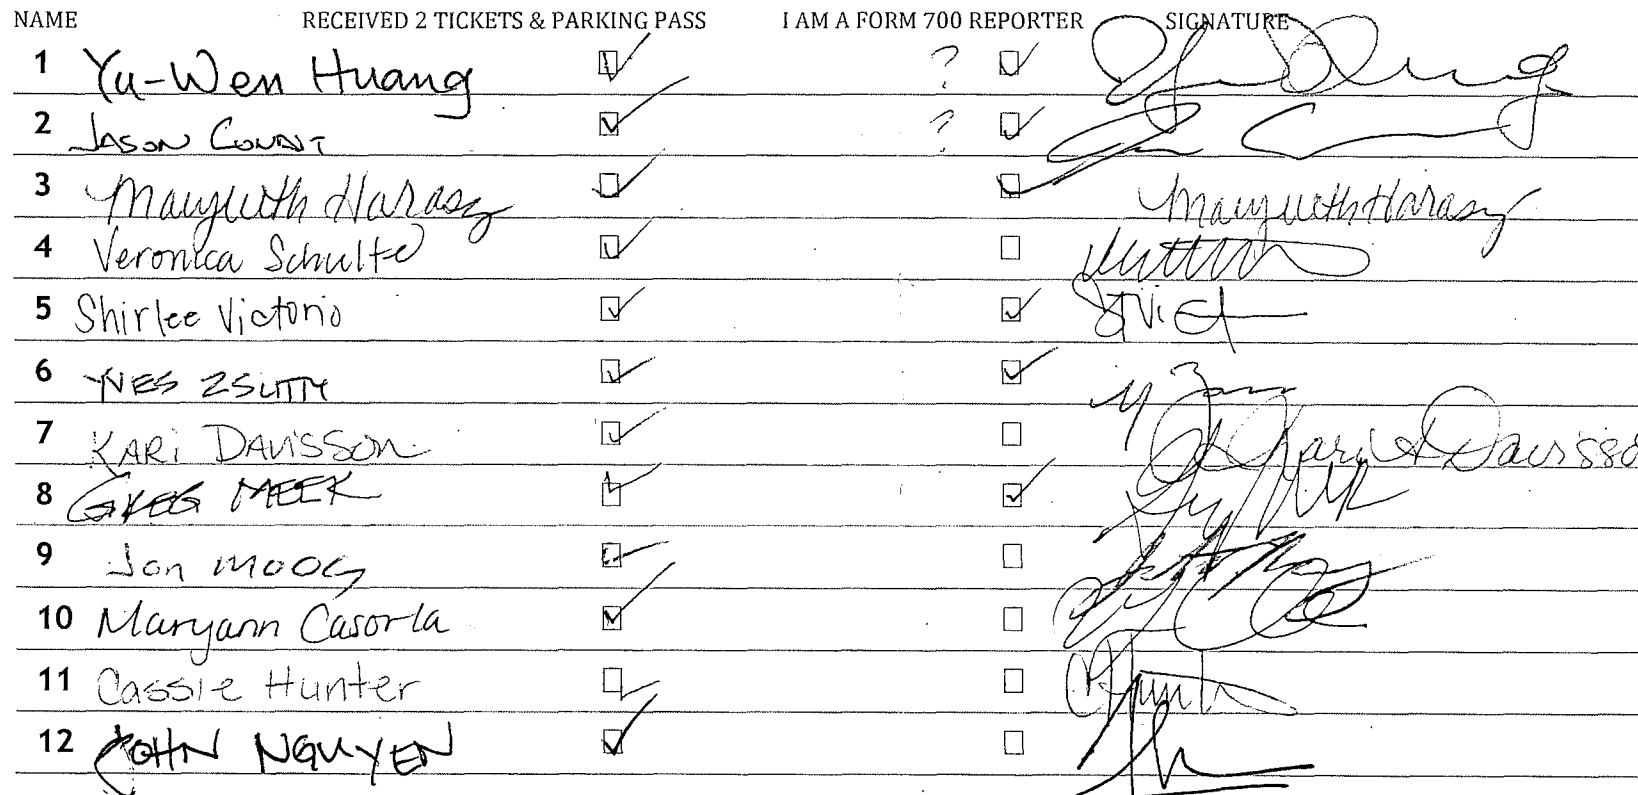 NAME RECEIVED 2 TICKETS & PARKING PASS I AM A FORM 700 REPORTER SIGNATURE
1 Yu-Wen Huang ?
2 JASON CONDIT ?
3 Maryruth Harasz Maryruth Harasz
4 Veronica Schulte
5 Shirlee Victorio
6 YVES ZSUTTY
7 KARI DAVISSON Kari A Davisso
8 GREG MEEK
9 Jon MOOG
10 Maryann Casorla
11 Cassie Hunter
12 JOHN NGUYEN